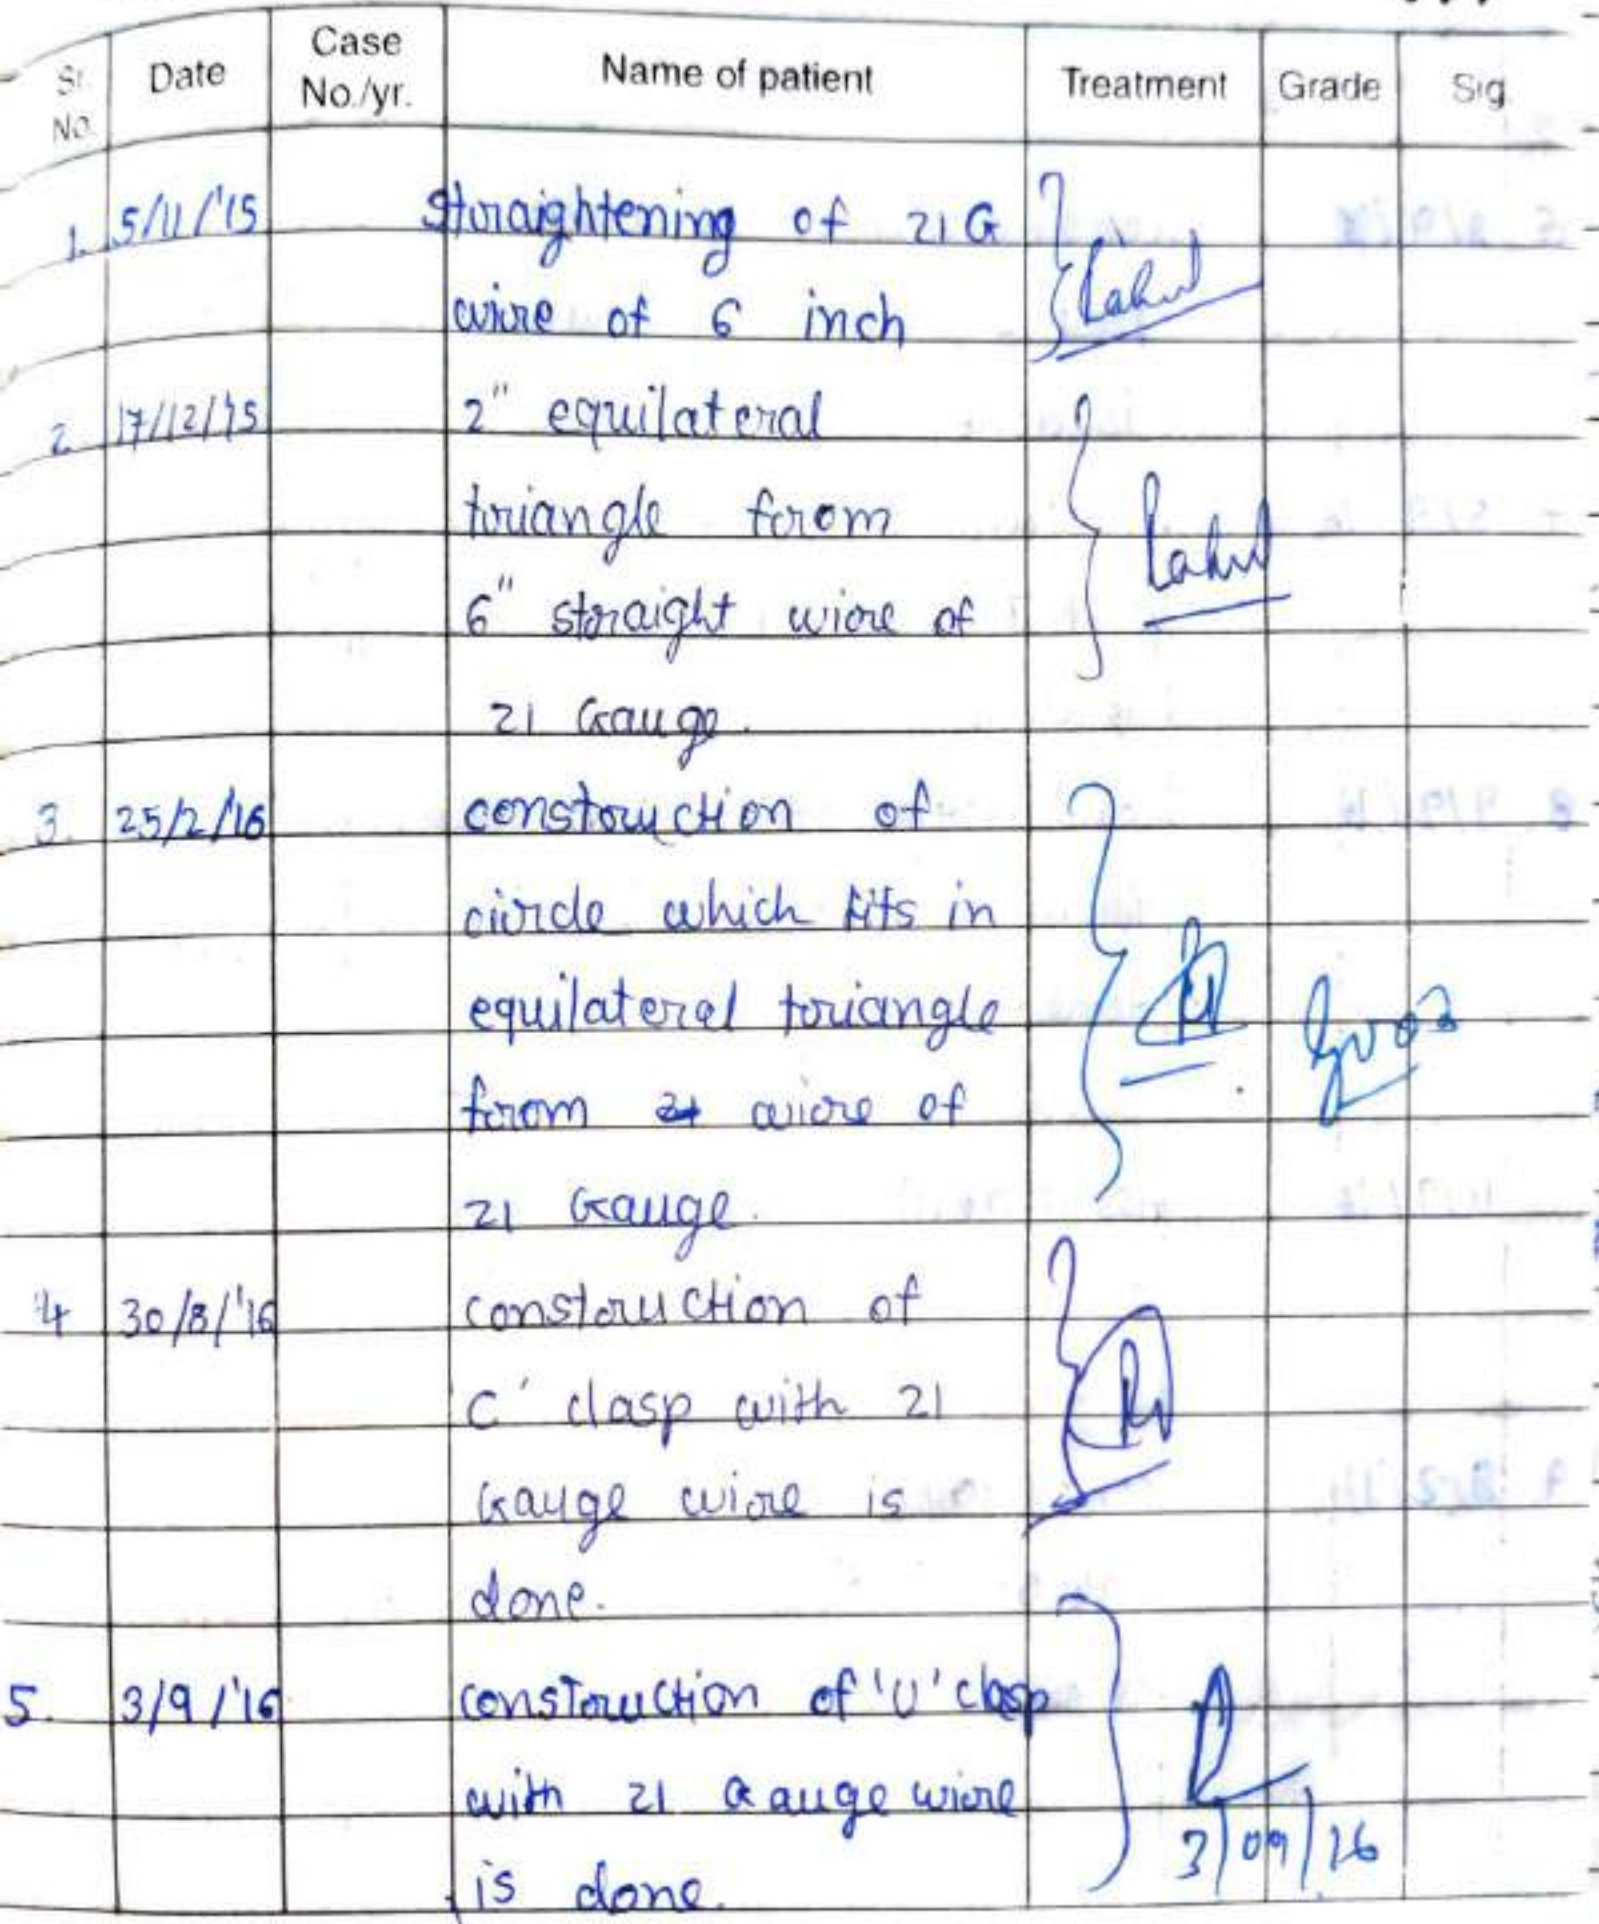 Sr. No. Date Case No./yr. Name of patient Treatment Grade Sig
1. 5/11/'15 Straightening of 21 G
wire of 6 inch
2. 17/12/15 2" equilateral
triangle from
6" straight wire of
21 Gauge.
3. 25/2/'16 construction of
circle which fits in
equilateral triangle
from wire of
Good
21 Gauge.
4 30/8/'16 construction of
C' clasp with 21
Gauge wire is
done.
5. 3/9/'16 construction of 'U' clasp
with 21 Gauge wire
3/09/16
is done.